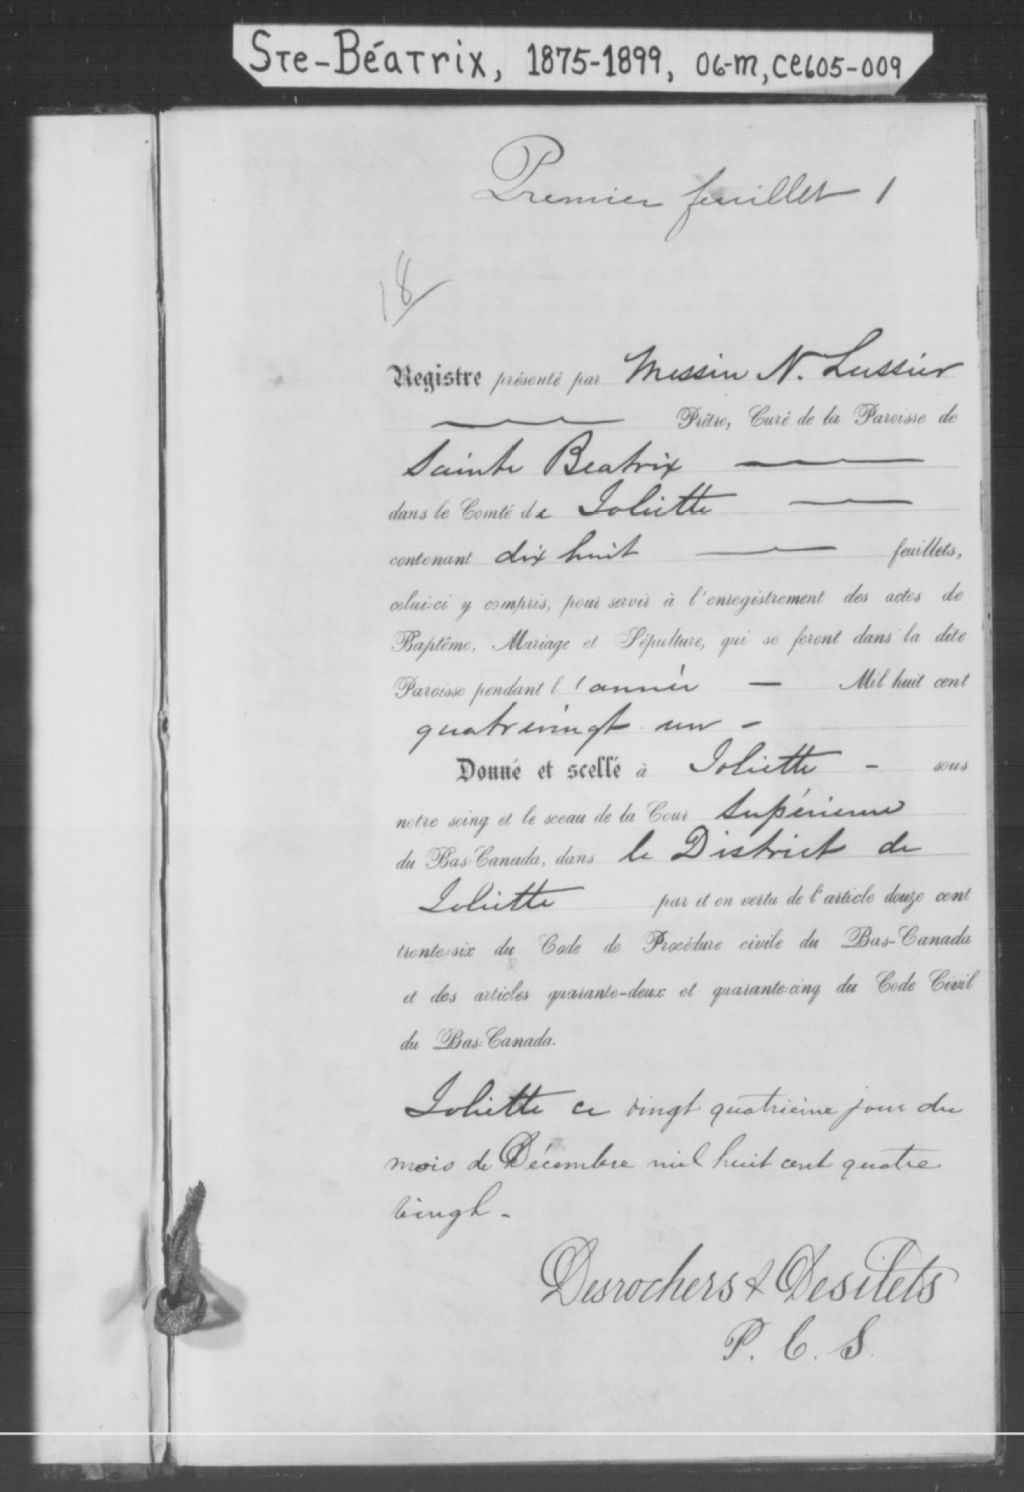 Ste-Béatrix, 1875-1899, 06-M, CE605-009
Premier feuillet 1
18
Registre présenté par Messire N. Lussier
Prêtre, Curé de la Paroisse de
Sainte Beatrix
dans le Comté de Joliette
contenant dix huit feuillets,
celui-ci y compris, pour servir à l'enregistrement des actes de
Baptême, Mariage et Sépulture, qui se feront dans la dite
Paroisse pendant l'année — Mil huit cent
quatrevingt un -
Donné et scellé à Joliette - sous
notre seing et le sceau de la Cour Supérieure
du Bas-Canada, dans le District de
Joliette par et en vertu de l'article douze cent
trente-six du Code de Procédure civile du Bas-Canada
et des articles quarante-deux et quarante-cinq du Code Civil
du Bas-Canada.
Joliette ce vingt quatrième jour du
mois de Décembre mil huit cent quatre
vingt -
Desrochers & Desilets
P. C. S.